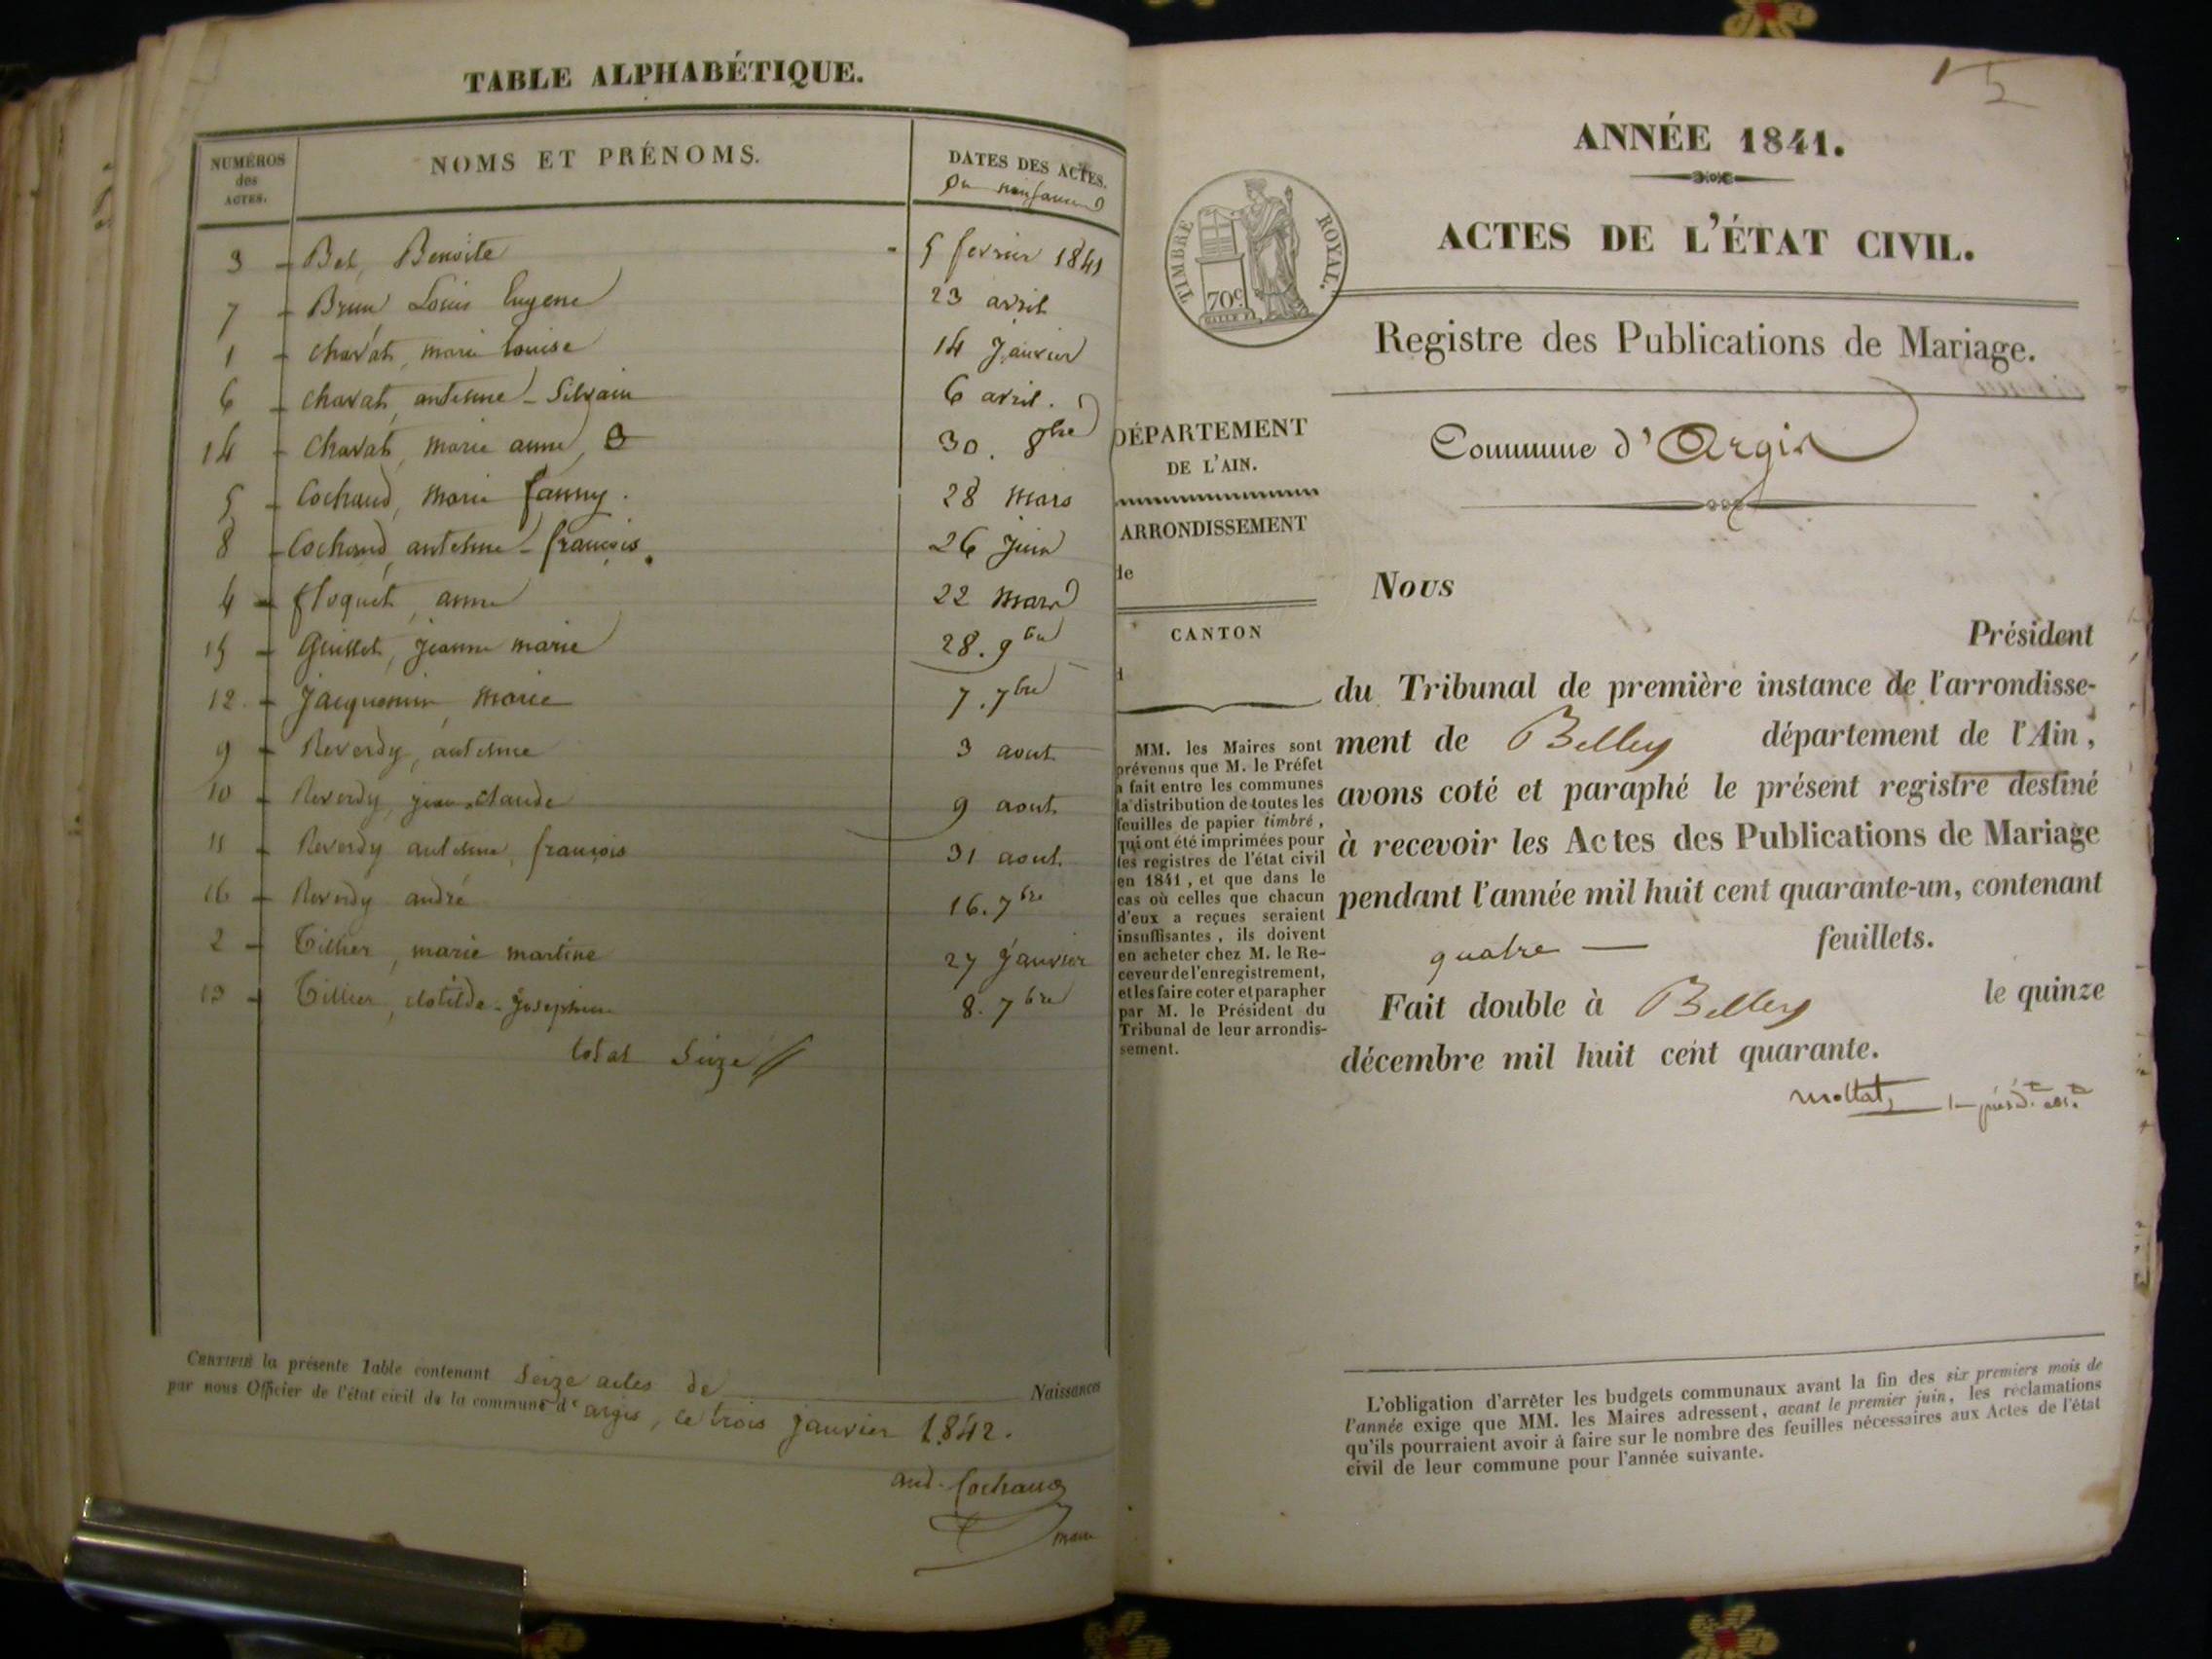 TABLE ALPHABÉTIQUE.
NUMÉROS des ACTES.
NOMS ET PRÉNOMS.
DATES DES ACTES.
3 - Bel, Benoite - 5 fevrier 1841
7 - Brun Louis Eugene 23 avril
1 - Chavat, marie louise 14 Janvier
6 - Chavat, antelme - Silvain 6 avril.
14 - Chavat, marie anne 30. 8bre
5 - Cochaud, marie fanny. 28 mars
8 - Cochaud, antelme - françois. 26 Juin
4 - floquet, anne 22 mars
15 - Guillot, Jeanne marie 28. 9bre
12 - Jacquemin, marie 7. 7bre
9 - Reverdy, antelme 3 aout
10 - Reverdy, jean claude 9 aout
11 - Reverdy antelme, françois 31 aout.
16 - Reverdy andré 16. 7bre
2 - Tillier, marie martine 27 Janvier
13 - Tillier, clotilde - Josephine 8. 7bre
total Seize
CERTIFIÉ la présente Table contenant Seize actes de Naissances
par nous Officier de l'état civil de la commune d'argis, ce trois Janvier 1842.
and. Cochaud
maire
ANNÉE 1841.
ACTES DE L'ÉTAT CIVIL.
TIMBRE ROYAL.
70c.
Registre des Publications de Mariage.
Commune d'Argis
DÉPARTEMENT
DE L'AIN.
ARRONDISSEMENT
de
CANTON
d
MM. les Maires sont
prévenus que M. le Préfet
a fait entre les communes
la distribution de toutes les
feuilles de papier timbré,
qui ont été imprimées pour
les registres de l'état civil
en 1841, et que dans le
cas où celles que chacun
d'eux a reçues seraient
insuffisantes, ils doivent
en acheter chez M. le Re-
ceveur de l'enregistrement,
et les faire coter et parapher
par M. le Président du
Tribunal de leur arrondis-
sement.
Nous
Président
du Tribunal de première instance de l'arrondisse-
ment de Belley département de l'Ain,
avons coté et paraphé le présent registre destiné
à recevoir les Actes des Publications de Mariage
pendant l'année mil huit cent quarante-un, contenant
quatre — feuillets.
Fait double à Belley le quinze
décembre mil huit cent quarante.
L'obligation d'arrêter les budgets communaux avant la fin des six premiers mois de
l'année exige que MM. les Maires adressent, avant le premier juin, les réclamations
qu'ils pourraient avoir à faire sur le nombre des feuilles nécessaires aux Actes de l'état
civil de leur commune pour l'année suivante.